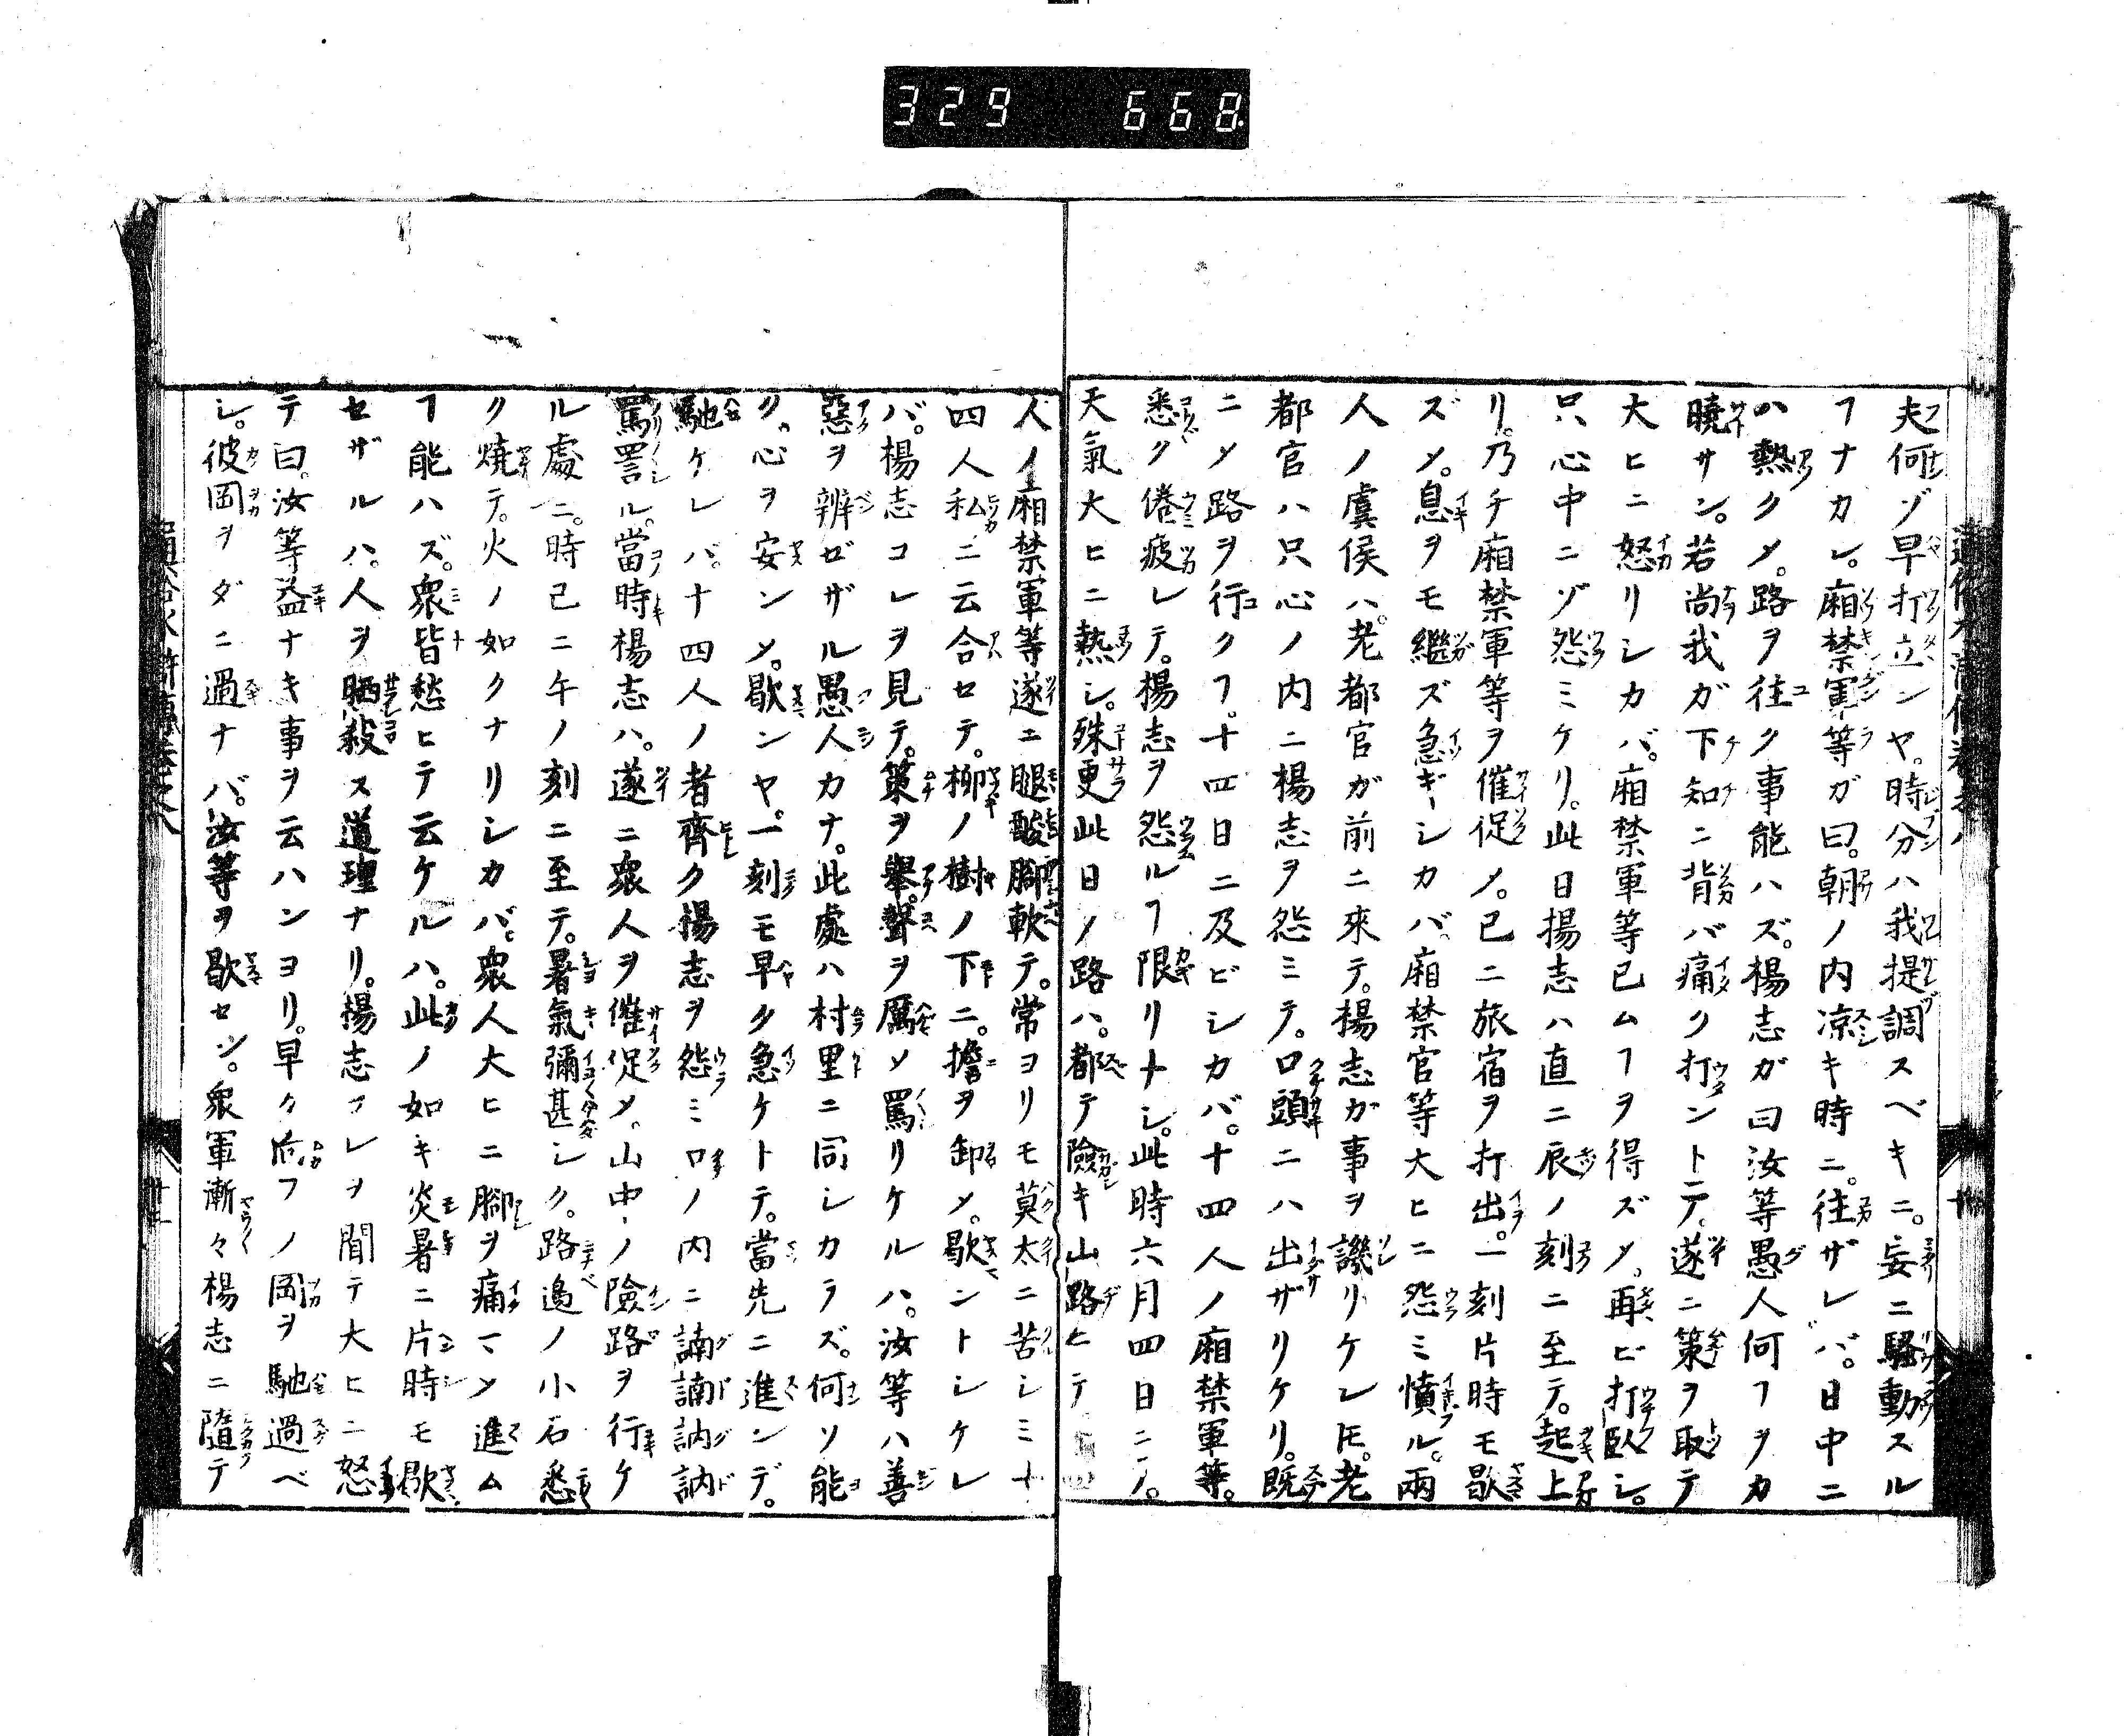 329 668
夫何ゾ早打立ンヤ。時分ハ我提調スベキニ。妄ニ騷動スル
ヿナカレ。廂禁軍等ガ曰。朝ノ内凉キ時ニ。往ザレバ。日中ニ
ハ熱クメ。路ヲ往ク事能ハズ。楊志ガ曰汝等愚人何ヿヲカ
曉サン。若尚我ガ下知ニ背バ痛ク打ントテ。遂ニ策ヲ取テ
大ヒニ怒リシカバ。廂禁軍等已ムヿヲ得ズメ。再ビ打臥シ。
只心中ニゾ怨ミケリ。此日楊志ハ直ニ辰ノ刻ニ至テ。起上
リ。乃チ廂禁軍等ヲ催促メ。已ニ旅宿ヲ打出。一刻片時モ歇
ズメ。息ヲモ繼ズ急ギシカバ。廂禁官等大ヒニ怨ミ憤ル。兩
人ノ虞侯ハ。老都官ガ前ニ來テ。楊志ガ事ヲ譏リケレ𪜈。老
都官ハ只心ノ内ニ楊志ヲ怨ミテ。口頭ニハ出ザリケリ。既
ニメ路ヲ行クヿ。十四日ニ及ビシカバ。十四人ノ廂禁軍等。
悉ク倦疲レテ。楊志ヲ怨ルヿ限リナシ。此時六月四日ニノ。
天氣大ヒニ熱シ。殊更此日ノ路ハ。都テ險キ山路ヒテ
人ノ廂禁軍等遂ニ腿酸脚軟テ。常ヨリモ莫太ニ苦シミ十
四人私ニ云合セテ。柳ノ樹ノ下ニ。擔ヲ卸メ。歇ントシケレ
バ。楊志コレヲ見テ。策ヲ舉。聲ヲ厲メ罵リケルハ。汝等ハ善
惡ヲ辨ゼザル愚人カナ。此處ハ村里ニ同シカラズ。何ソ能
ク。心ヲ安ンメ。歇ンヤ。一刻モ早ク急ケトテ。當先ニ進ンデ。
馳ケレバ。十四人ノ者齊ク楊志ヲ怨ミ口ノ内ニ諵諵訥訥
罵詈ル。當時楊志ハ。遂ニ衆人ヲ催促メ。山中ノ險路ヲ行ケ
ル處ニ。時已ニ午ノ刻ニ至テ。暑氣彌甚シク。路邉ノ小石悉
ク燒テ。火ノ如クナリシカバ。衆人大ヒニ脚ヲ痛マメ進ム
ヿ能ハズ。衆皆愁ヒテ云ケルハ。此ノ如キ炎暑ニ片時モ歇
セザルハ。人ヲ晒殺ス道理ナリ。楊志コレヲ聞テ大ヒニ怒
テ曰。汝等益ナキ事ヲ云ハンヨリ。早ク向フノ岡ヲ馳過ベ
シ。彼岡ヲダニ過ナバ。汝等ヲ歇セン。衆軍漸々楊志ニ隨テ